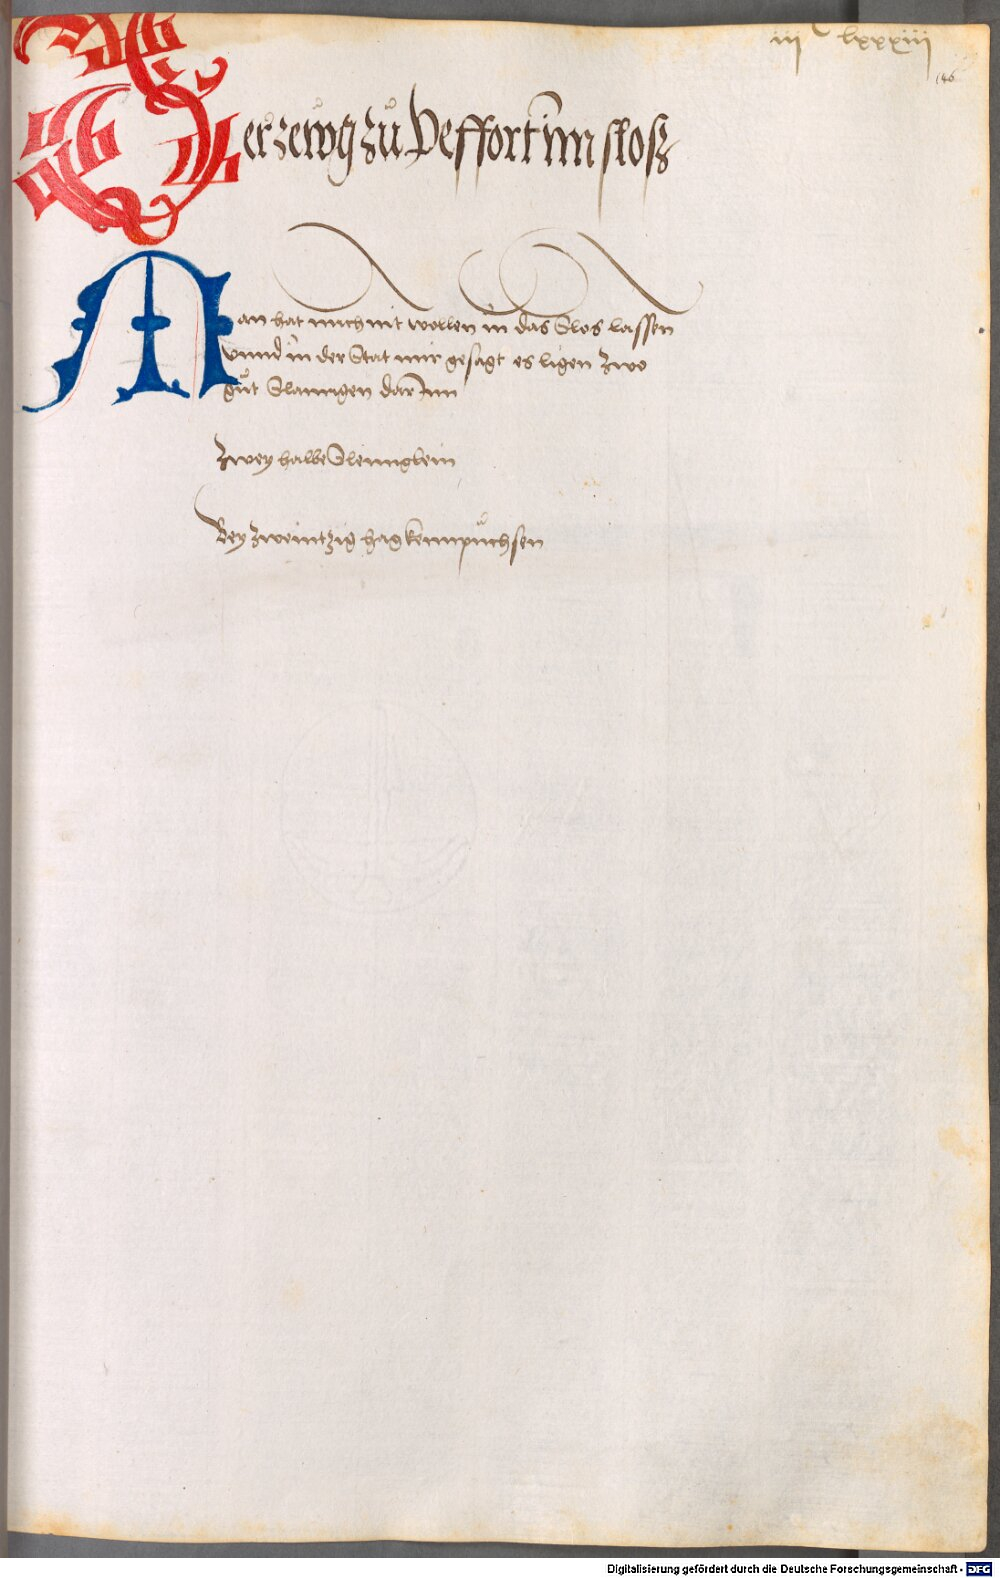 iii c lxxxiii
146
Der zewg zů Peffort im sloß
Man hat mich nit wollen in das Slos lassen
vnnd in der Stat mir gesagt es ligen zwo
gůt Slanngen darInn
Zwey halbe Slennglein
Bey zweintzig hagkennpůchsen
Digitalisierung gefördert durch die Deutsche Forschungsgemeinschaft - DFG